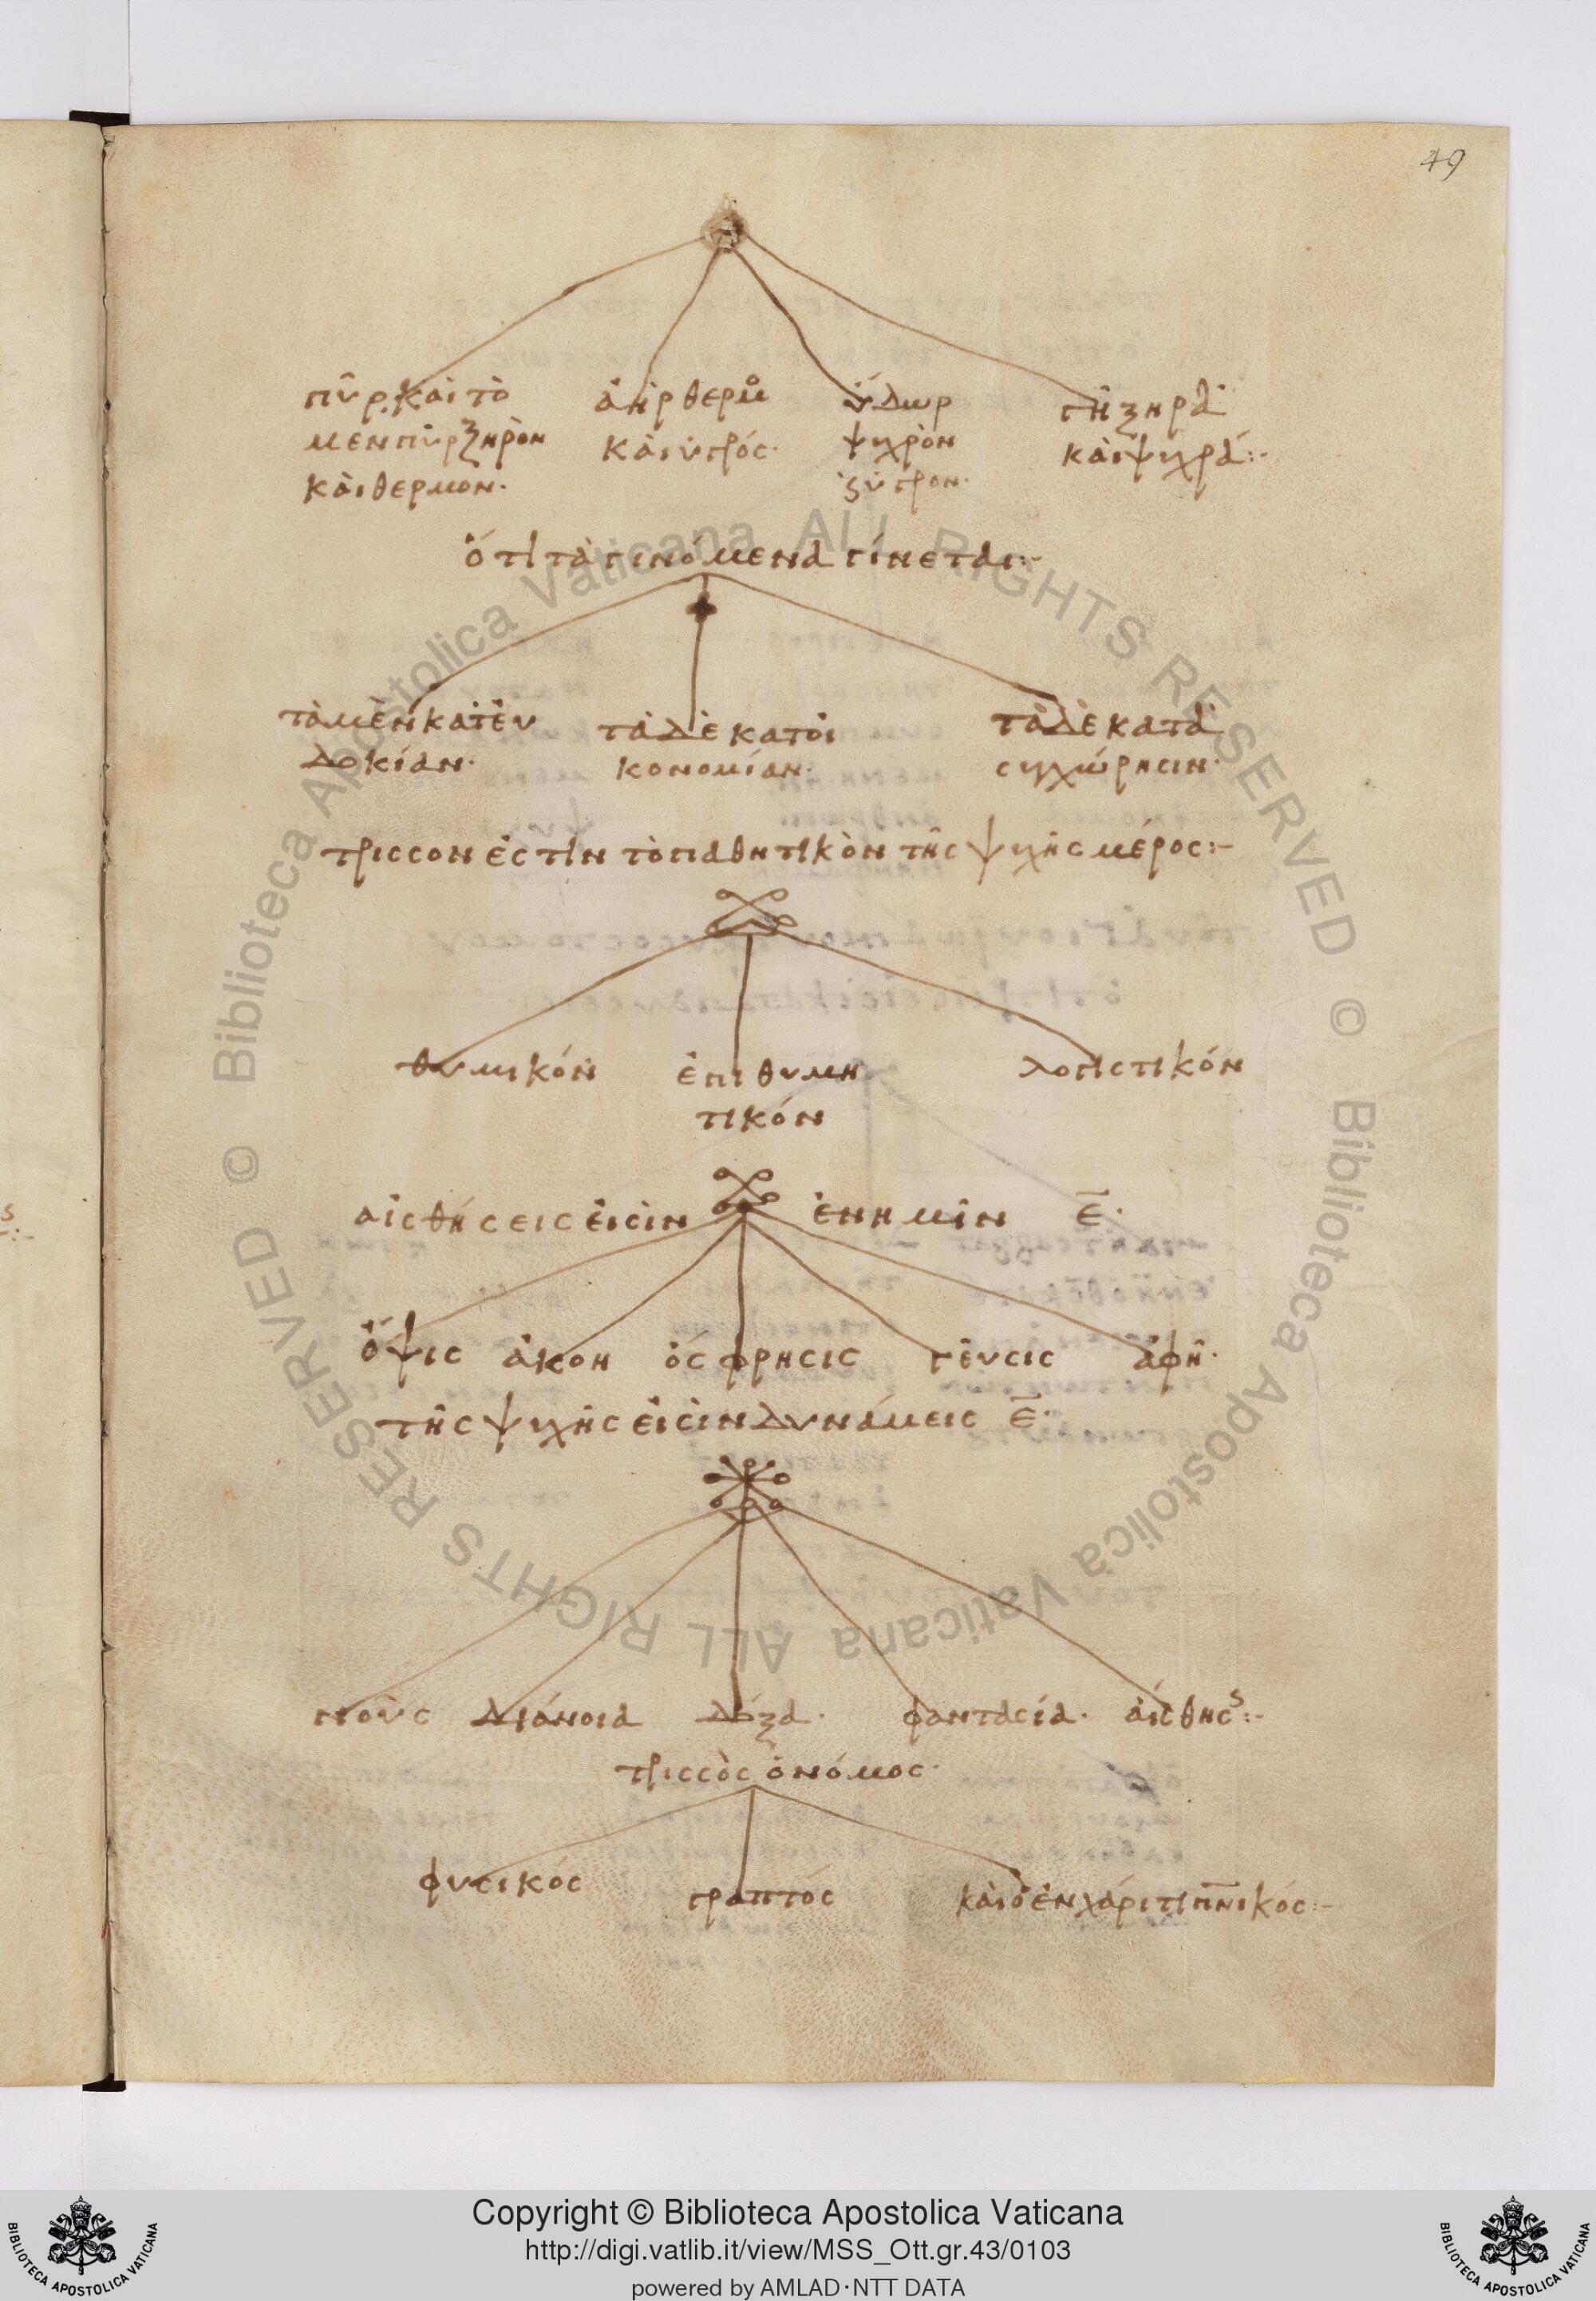 49
πῦρ καὶ τὸ ἀὴρ θερμ ὕδωρ γῆ ξηρὰ
μεν πῦρ ξηρὸν καὶ ὑγρός· ψυχρὸν καὶ ψυχρά:-
καὶ θερμον· ὑγρον·
ὅτι τὰ γινόμενα γίνεται:-
τὰ μὲν κατ εὐ τὰ δὲ κατ οἰ τὰ δὲ κατὰ
δοκίαν· κονομίαν· συγχώρησιν·
τρισσον ἐστιν τὸ παθητικὸν τῆς ψυχῆς μέρος:-
θυμικόν ἐπιθυμη λογιστικόν
τικόν
αἰσθήσεις εἰσὶν ἐν ἡμῖν ε̅·
ὄψις ἀκοη ὄσφρησις γεῦσις ἁφη·
τῆς ψυχῆς εἰσὶν δυνάμεις ε̅·
νοὺς διάνοια δόξα· φαντασία· αἴσθησ:-
τρισσὸς ὁ νόμος·
φυσικός γραπτός καὶ ὁ ἐν χάριτι π̅ν̅ικός:-
Copyright © Biblioteca Apostolica Vaticana
http://digi.vatlib.it/view/MSS_Ott.gr.43/0103
powered by AMLAD·NTT DATA
BIBLIOTECA APOSTOLICA VATICANA
BIBLIOTECA APOSTOLICA VATICANA
© Biblioteca Apostolica Vaticana ALL RIGHTS RESERVED
© Biblioteca Apostolica Vaticana ALL RIGHTS RESERVED